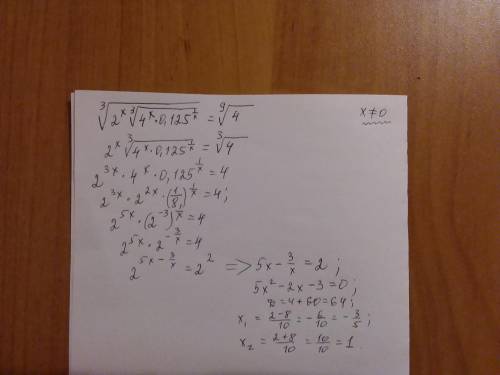 ∛(2ˣ ∛(4ˣ·0,125^(1/x))) = ⁹√4    x≠0
2ˣ ∛(4ˣ·0,125^(1/x)) = ∛4
2^(3x)·4ˣ·0,125^(1/x) = 4
2^(3x)·2^(2x)·(1/8)^(1/x) = 4;
2^(5x)·(2^(-3))^(1/x) = 4
2^(5x)·2^(-3/x) = 4
2^(5x-3/x) = 2² => 5x - 3/x = 2;
5x²-2x-3=0;
D=4+60=64;
x₁ = (2-8)/10 = -6/10 = -3/5;
x₂ = (2+8)/10 = 10/10 = 1.